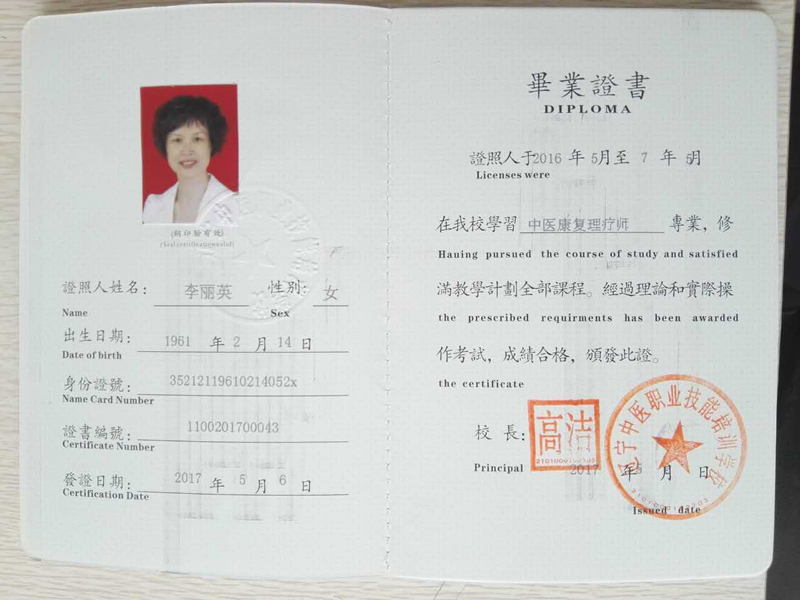 (鋼印驗有效)
(Seal certification valid)
證照人姓名： 李丽英 性别: 女
Name Sex
出生日期: 1961 年 2 月 14 日
Date of birth
身份證號: 35212119610214052x
Name Card Number
證書編號: 1100201700043
Certificate Number
發證日期: 2017 年 5 月 6 日
Certification Date
畢業證書
DIPLOMA
證照人于2016 年 5月至 7 年 5月
Licenses were
在我校學習 中医康复理疗师 專業，修
Hauing pursued the course of study and satisfied
滿教學計劃全部課程。經過理論和實際操
the prescribed requirments has been awarded
作考試，成績合格，頒發此證。
the certificate
校長: 高洁
Principal 2017 年 5 月 日
Issued date
辽宁中医职业技能培训学校